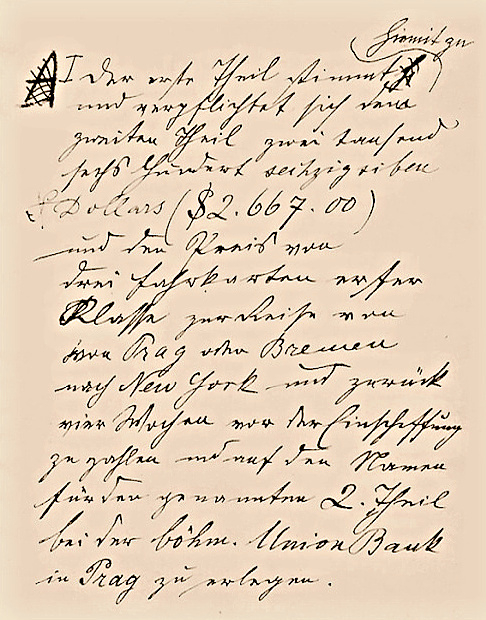 hiemit zu
I Der erste Theil stimmt
und verpflichtet sich dem
zweiten Theil zwei tausend
sechs hundert sechzig sieben
Dollars ($2.667.00)
und den Preis von
drei Fahrkarten erster
Klasse zur Reise von
von Prag oder Bremen
nach New York und zurück
vier Wochen vor der Einschiffung
zu zahlen und auf den Namen
für den genannten 2. Theil
bei der böhm. Union Bank
in Prag zu erlegen.